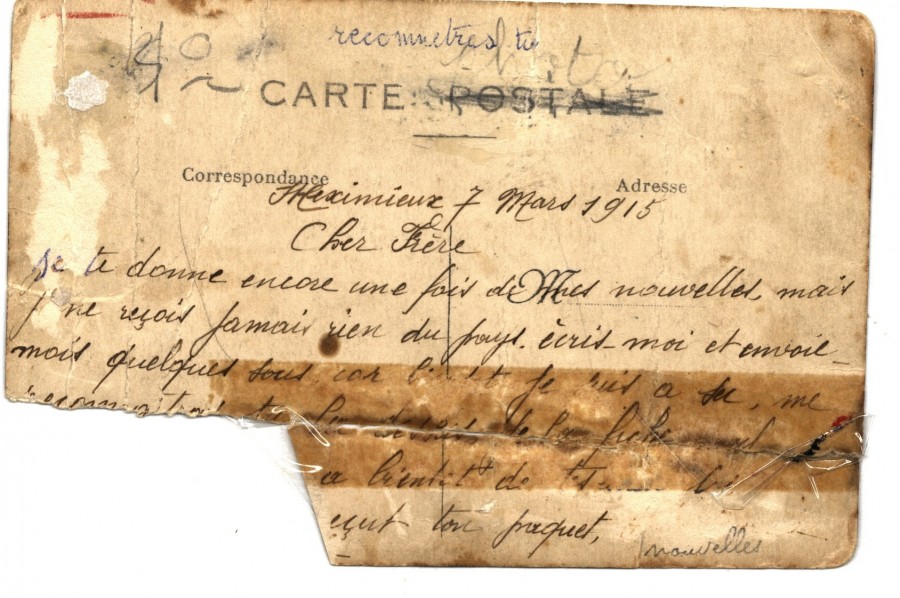 reconnetras tu
CARTE POSTALE
Correspondance
Adresse
Meximieux 7 Mars 1915
Cher Frère
Je te donne encore une fois de Mes nouvelles, mais
je ne reçois jamais rien du pays. écris-moi et envoie-
mois quelques sous, car bientôt je suis a sec, me
a bientot de
reçut ton paquet,
nouvelles